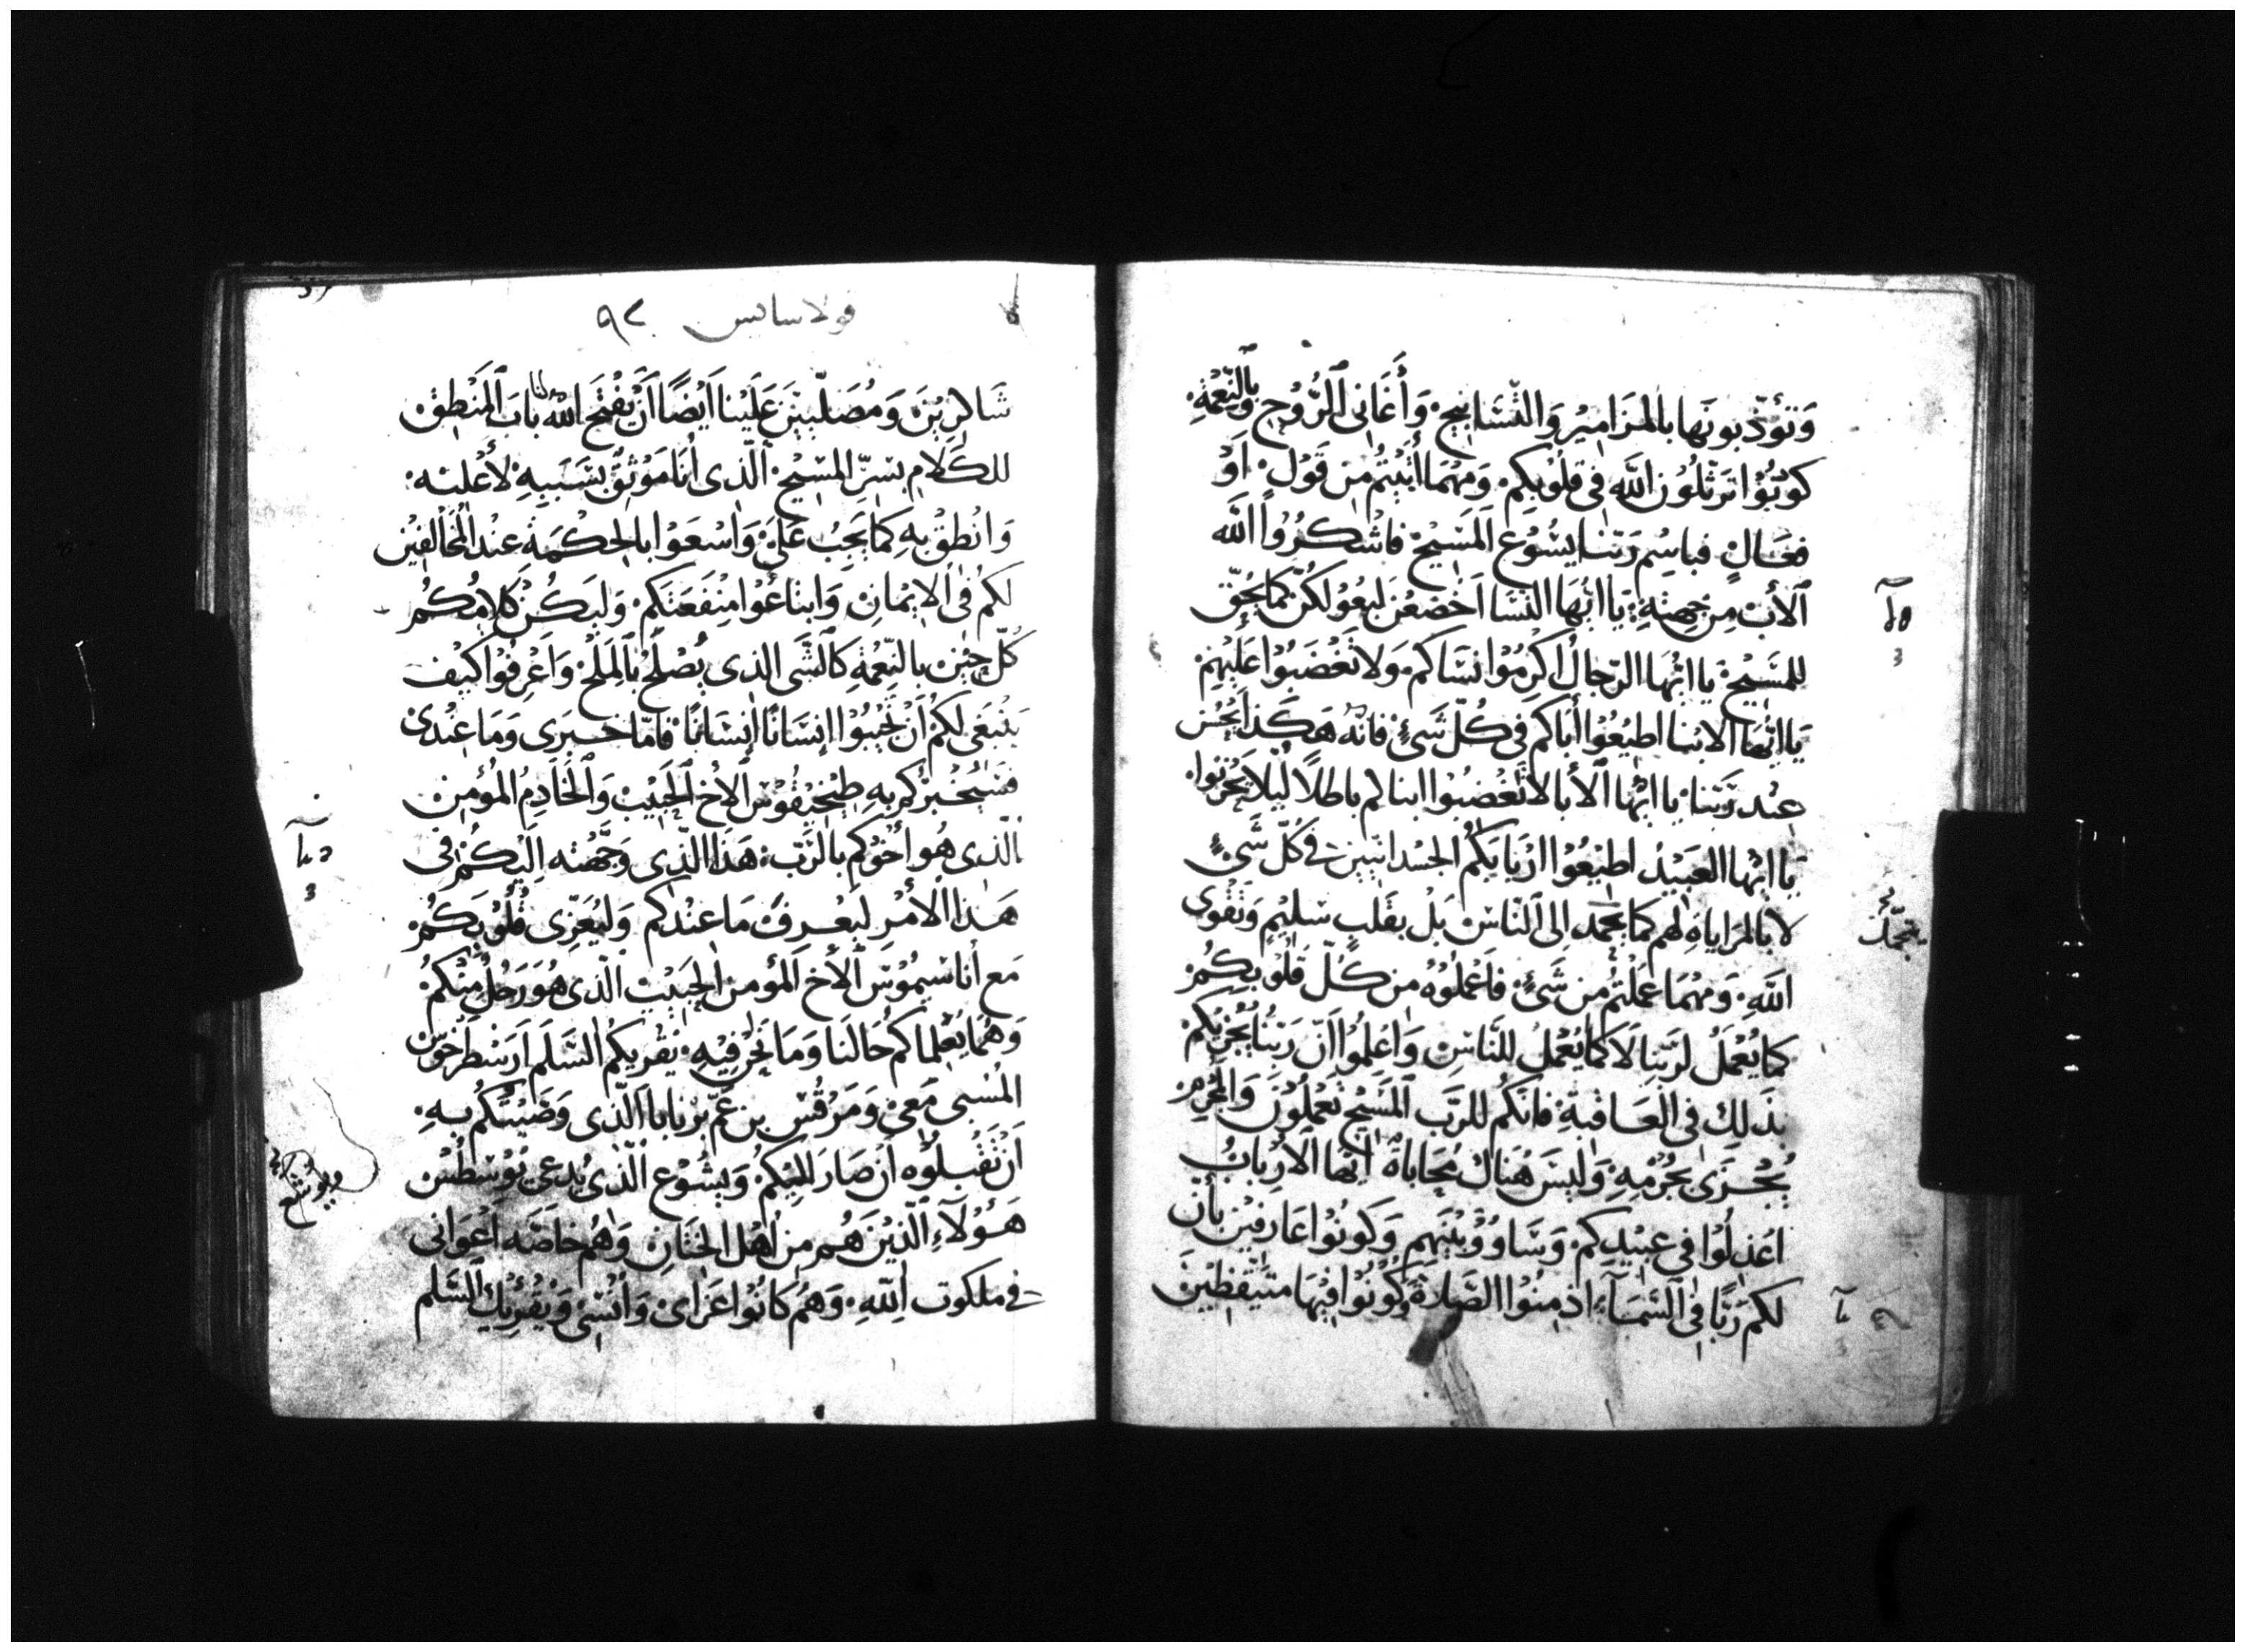 وَتؤدّبونَها بالمَزَاميرُ وَالتَّسَابيح. وَأغَاني الرُّوح وبالنّعْمَة.
كونُوا ترَتّلُون اللَّه في قلُوبكم. وَمهْمَا أتَيْتُم مِن قَوْل. اَوْ
فعَالٍ فباسْم رَبّنا يسُوع المَسِيح فاشكرُوا اللَّه
الأبَ مِن جهتِه. يَا ايُّها النسَا اخضعْن لبعُولكن كما يحق
للمَسِيح. يا ايُّهَا الرّجالُ اكرِمُوا نسَاكم وَلا تغْضَبُوا عَليهِم
يَا ايُّهَا الابنا اطيعُوا أباكم في كُلّ شَيْءٍ فانّه هَكذا يحْسُن
عِند رَبّنا. يا ايُّها الأبا لا تغْضبُوا ابناكم باطلاً ليلا يحْزنوا.
يَا ايّها العَبيدُ اطيعُوا ارْبابكمُ الجسدانيين في كُلّ شَيْءٍ
لا بالمراياهِ لهم كما يتحمد الى النّاس بَل بقَلبٍ سَليم وَتقْوى
اللَّهِ. وَمهْمَا عَملْتم مِن شَيْءٍ. فاعْملوُهُ من كلّ قلُوبكُم
كما يُعْمَلُ لرَبّنا لا كما يُعْملُ للنَّاسِ وَاعلموُا اَنّ رَبّنا يُجْزيكم
بذَلِكَ في العَاقبَةِ. فانّكم للرَّب المَسِيح تعْملُوْنَ وَالمجْرم
يُجْزَى بجُرْمهِ. وَليسَ هُنَاك مُحَاباةٌ ايّها الأرْبابُ
اعْدِلُوا في عبيْدِكم. وَسَاوُوا بَيْنَهم وَكونُوْا عَارفيْنَ بأنّ
لكم رَبًّا في السَّمَآءِ ادْمِنُوا الصَّلاة وكونُوْا فيْهَا متيَقظِيْنَ
يتحمّد
قولاسايس ٩٢
شَاكرِيْنَ وَمُصَلّييْنَ عَلَيْنا اَيْضًا اَنْ يفْتَح اللّه لنا بابَ المَنْطِق
للكَلام بسِرّ المسِيْح. الّذى أنَا مَوْثق بسَببِهِ لأعْلنه.
وَانْطق بهِ كمَا يَجبُ عَليَّ. وَاسْعَوْا بالحِكْمَة عِنْد المخَالفِيْن
لكم في الايْمَان. وَابتَاعُوا مَنْفَعَتكم. وَليَكُنْ كلامُكُم
كُلّ حِيْن بالنّعْمَةِ كالشَّى الذى يُصْلح بالملْح. وَاعْرفُوا كيْف
يَنْبَغى لكم اَنْ تجيْبُوْا انسَانًا انسَانًا فامّا خبَرى وَمَا عِنْدى
فسَيُخْبركم بهِ طيخيقُوْس الأخ الحَبيْب وَالخَادِم المُؤمِن
الّذى هُو أخوْكم بالرَّب. هَذا الّذى وَجَّهته اِليْكُم في
هَذا الأمْر ليَعْرفَ مَا عنْدكم وَليُعَزّى قلُوْبَكُم
مَع أنا سيمُوْسَ الأخ المؤمن الحَبيْبِ الّذى هُوَ رَجُل منْكم
وَهُما يُعْلماكم حَالنَا وَمَا نحْن فيْهِ. يقْريكُم السَّلم ارَسْطرَخوّس
المُسْبى مَعى وَمَرْقُسَ بن عَمّ برْنابا الّذى وَصّيْتكُم بهِ.
اَنْ تقْبلُوْه اَن صَارَ اليْكم. وَيسُوْع الّذى يُدعى يُوْسْطُسْ
هَؤُلآءِ الّذيْنَ هُم مِن أهْل الخِتَان وَهُم خاصَّه اَعْوَانى
في ملكوت اللّهِ. وَهُم كانُوْا عَزَاى وَأنْسى وَيُقْرِئِكُ السَّلم
ويوشع